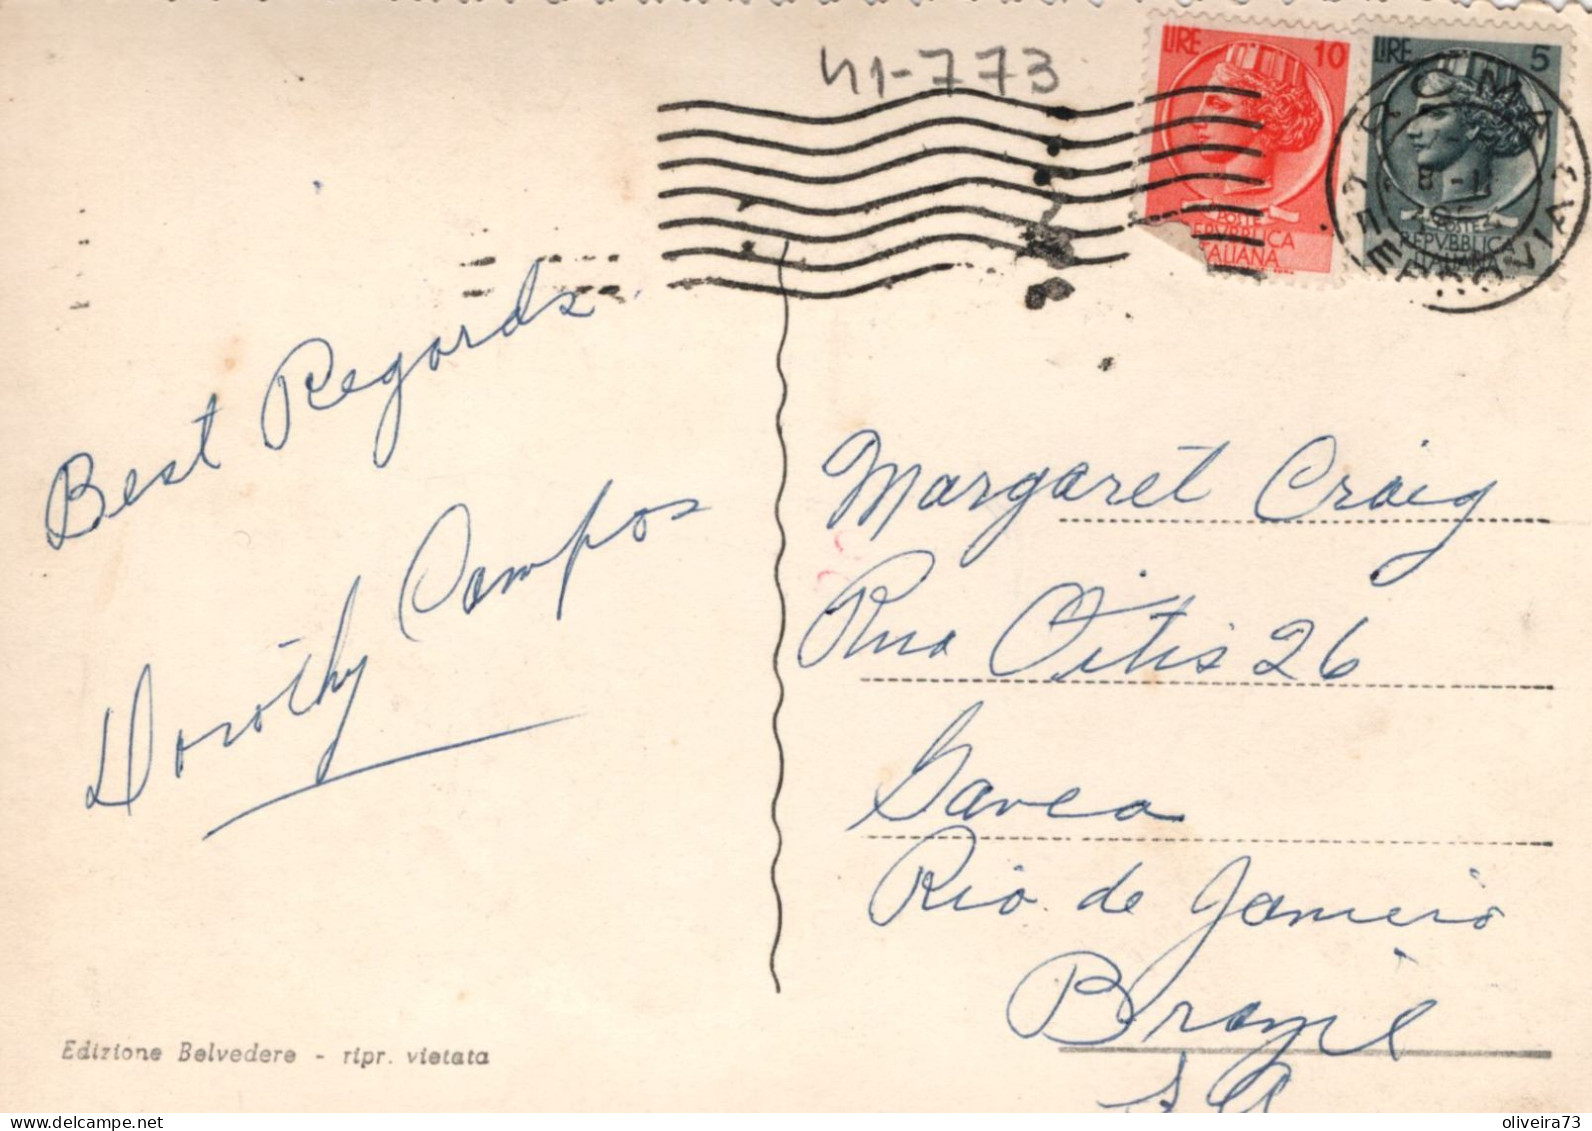 41-773
LIRE 10
POSTE
REPVBBLICA
ITALIANA
LIRE 5
POSTE
REPVBBLICA
ITALIANA
ROMA
FERROVIA
Best Regards
Dorothy Campos
Margaret Craig
Rua Oitis 26
Gavea
Rio de Janeiro
Brazil
S.A.
Edizione Belvedere - ripr. vietata
oliveira73